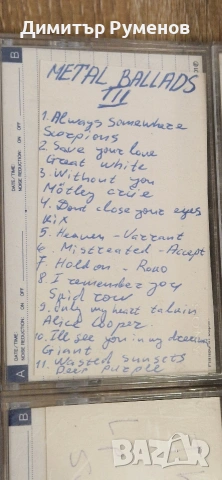 Димитър Руменов
B
METAL BALLADS
III
1. Always Somewhere
Scorpions
2 Save your love
Great white
3. Without you
Mötley crüe
4. Dont close your eyes
Kix
5. Heaven - Warrant
6. Mistreated - Accept
7 Hold on - Road
8. I remember you
Skid row
9. Only my heart talkin
Alice Cooper.
10. I'll see you in my dreams
Giant
11. Wasted sunsets
Deep purple
DATE/TIME
NOISE REDUCTION ON OFF
DATE/TIME
NOISE REDUCTION ON OFF
A
B
bazar.bg